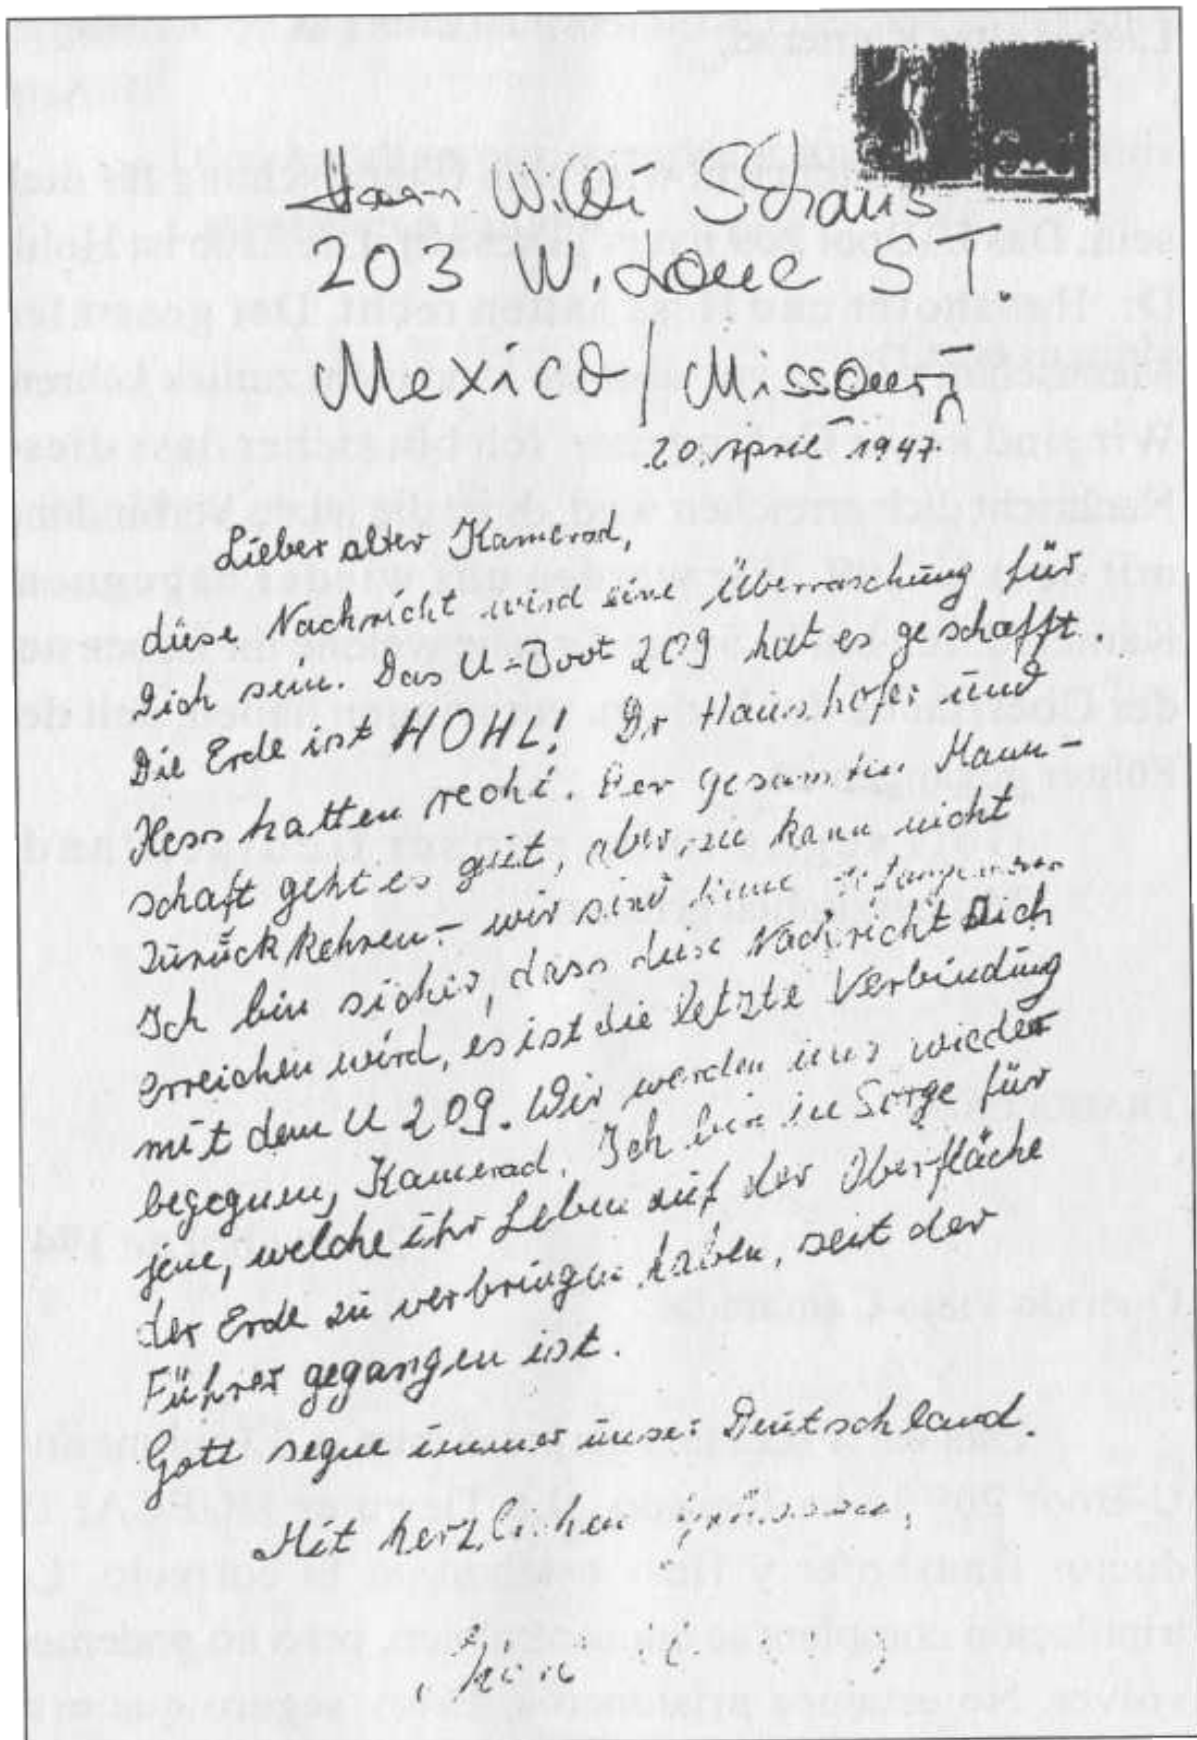 Herrn Willi Schaus
203 W. Love ST.
Mexico / Missouri
20. April 1947.
Lieber alter Kamerad,
diese Nachricht wird eine Überraschung für
Dich sein. Das U-Boot 209 hat es geschafft.
Die Erde ist HOHL! Dr Haushofer und
Hess hatten recht. Der gesamten Mann-
schaft geht es gut, aber sie kann nicht
zurückkehren - wir sind keine
Ich bin sicher, dass diese Nachricht Dich
erreichen wird, es ist die letzte Verbindung
mit dem U 209. Wir werden uns wieder
begegnen, Kamerad. Ich bin in Sorge für
jene, welche ihr Leben auf der Oberfläche
der Erde zu verbringen haben, seit der
Führer gegangen ist.
Gott segne immer unser Deutschland.
Mit herzlichen